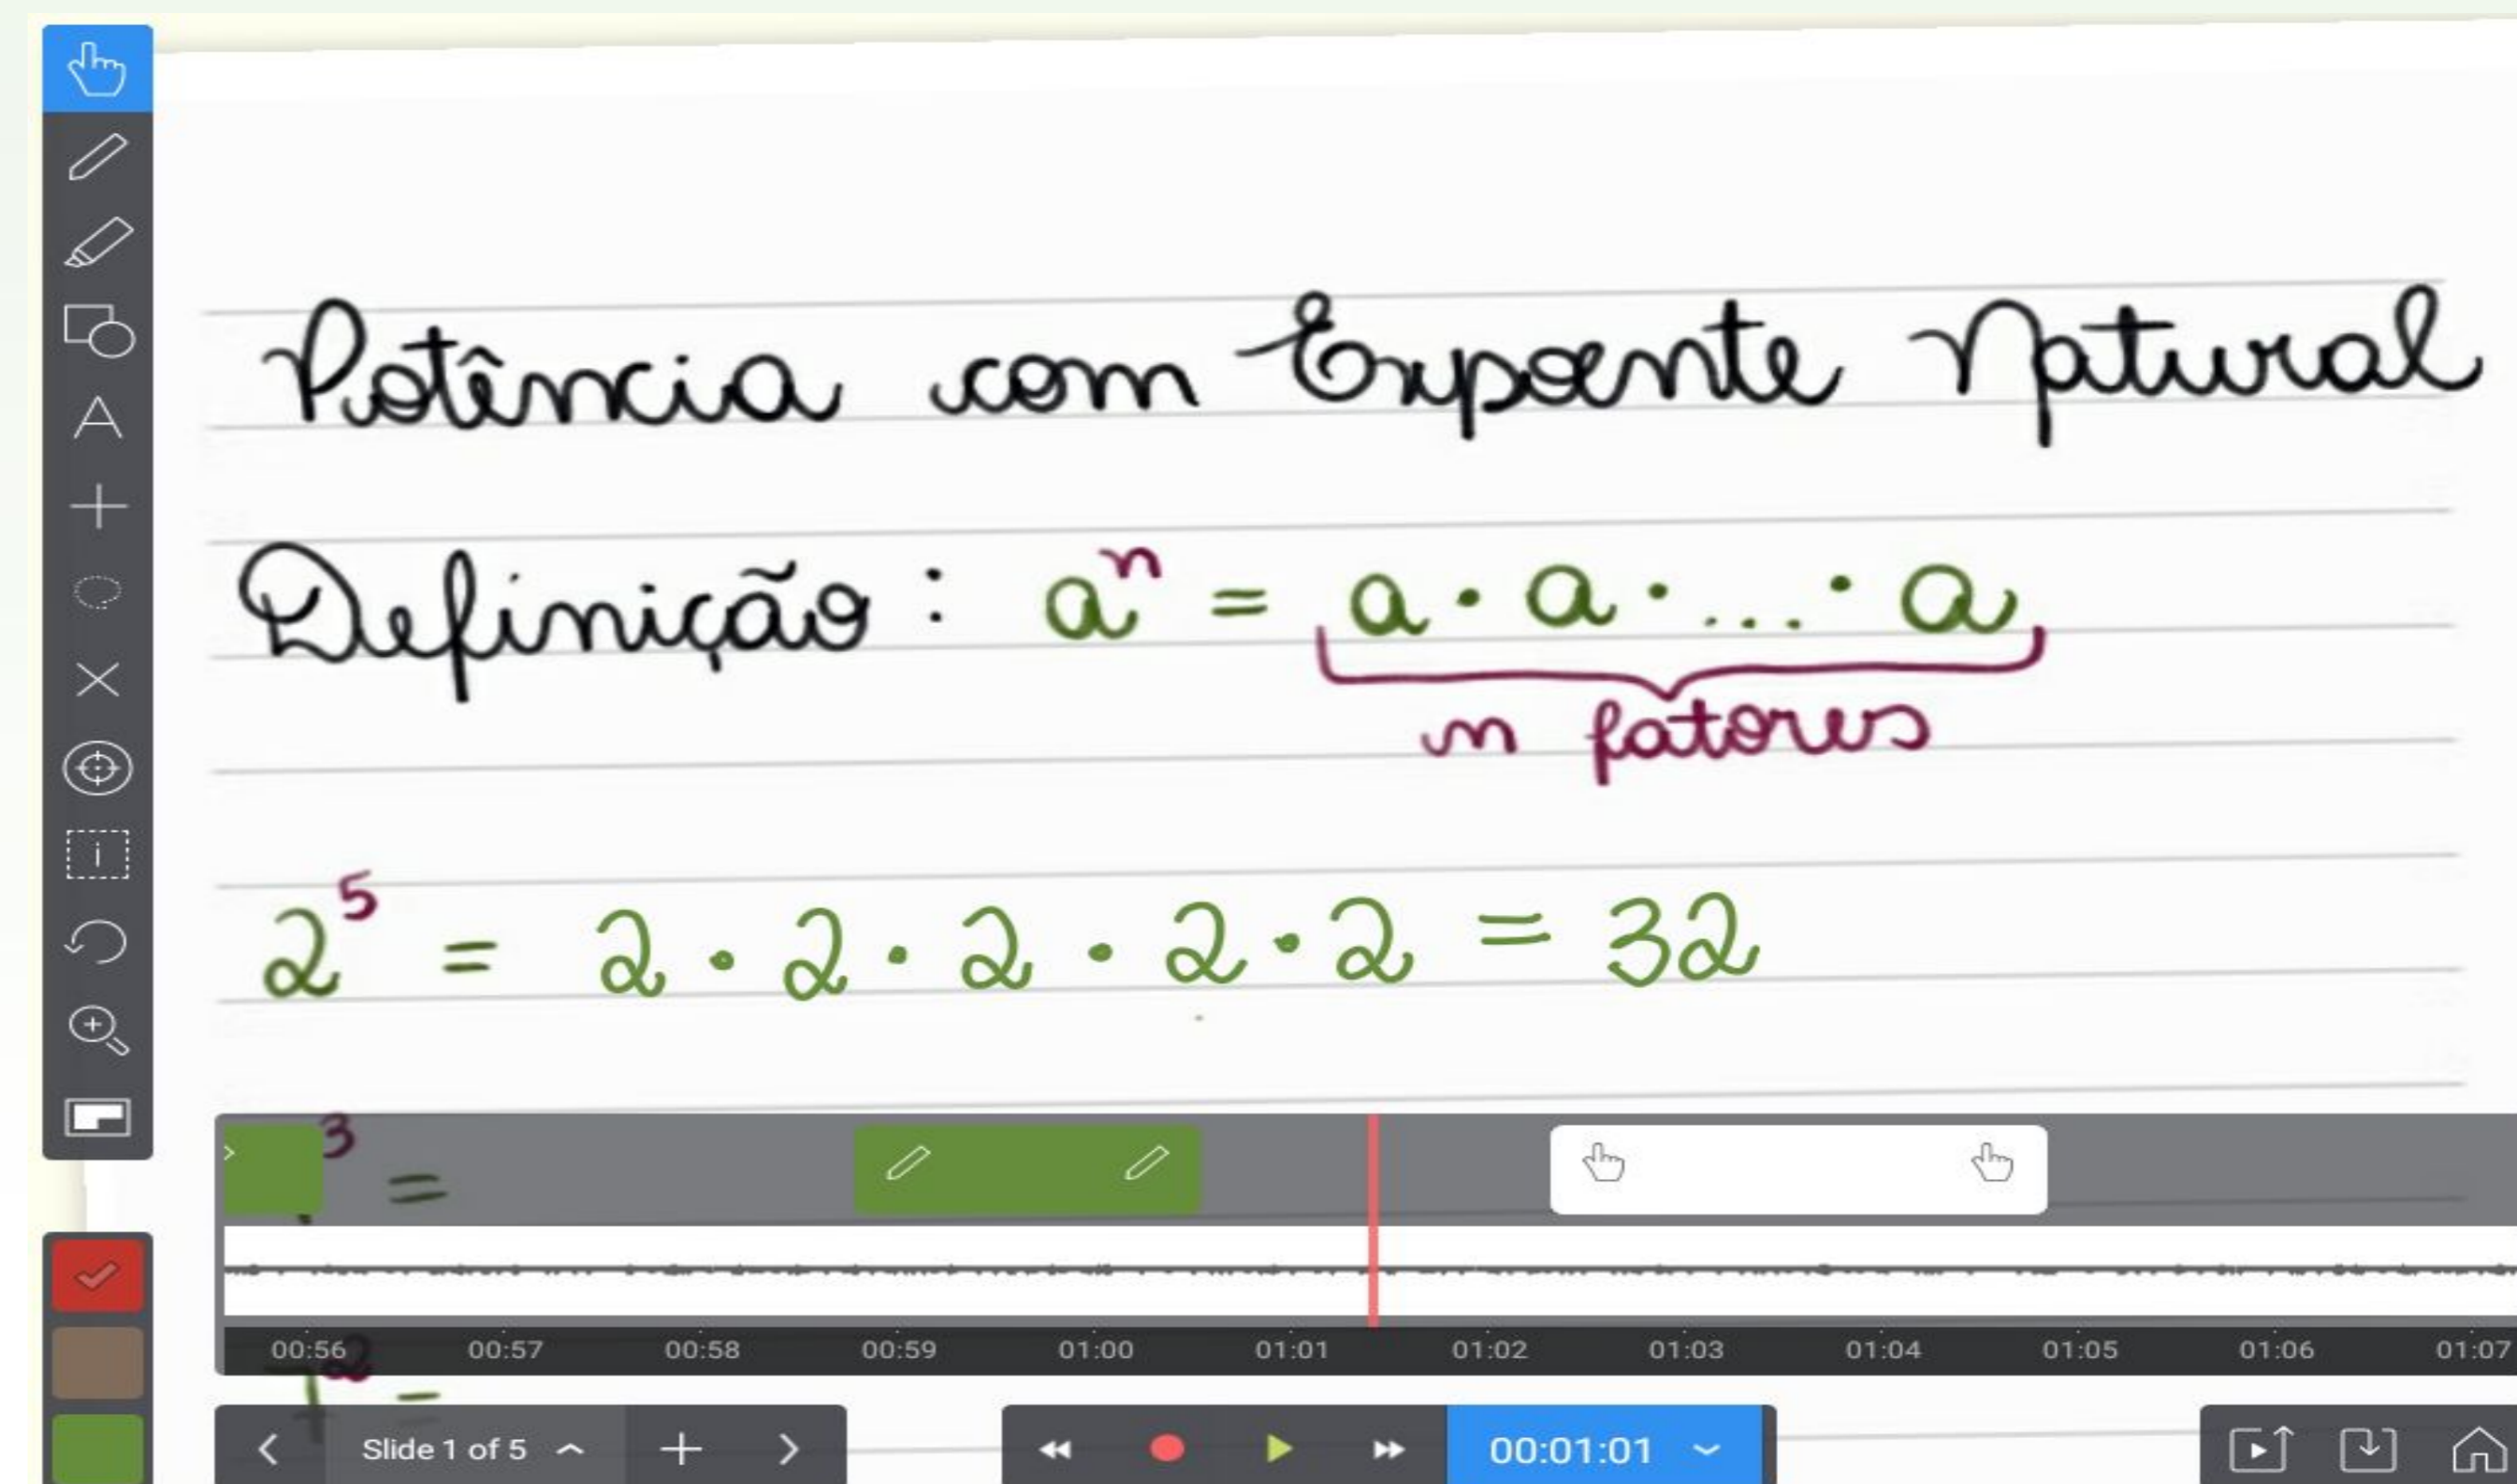 Potência com Expoente Natural
Definição : aⁿ = a · a · ... · a
n fatores
2⁵ = 2 · 2 · 2 · 2 · 2 = 32
3 =
00:56 00:57 00:58 00:59 01:00 01:01 01:02 01:03 01:04 01:05 01:06 01:07
2 =
Slide 1 of 5
00:01:01